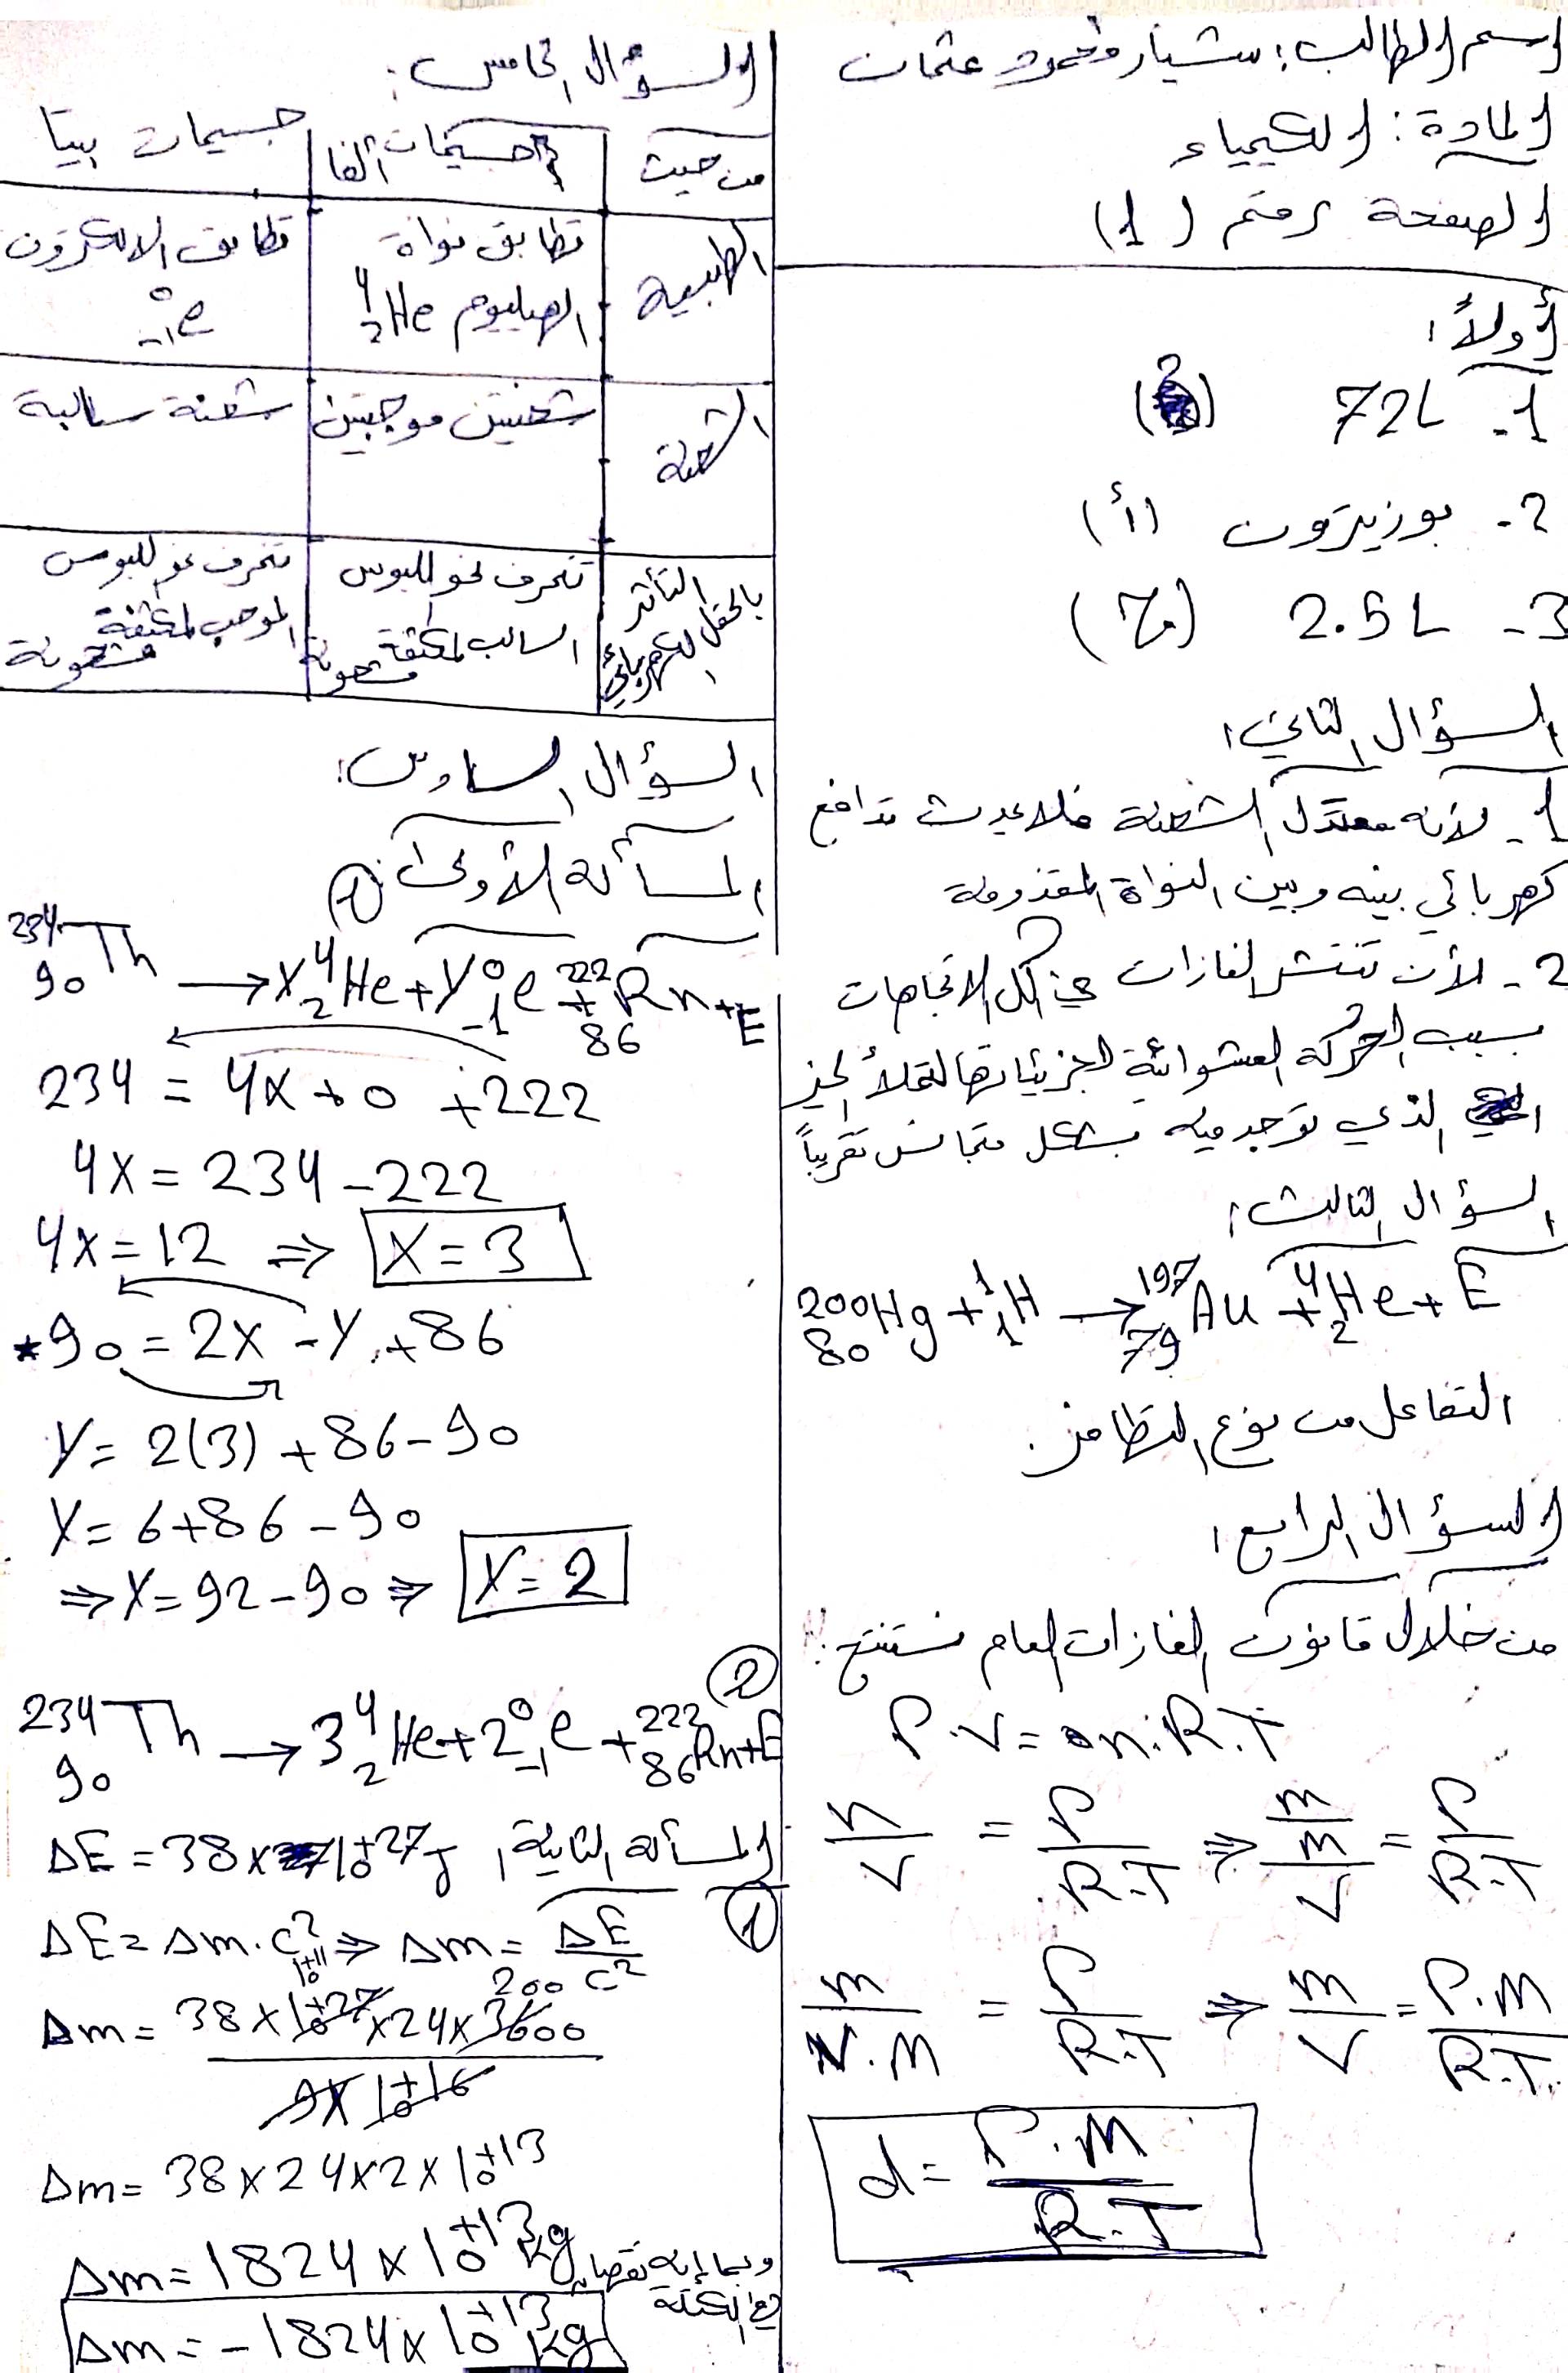 اسم الطالب: ستيار محمود عثمان
المادة: الكيمياء
الصفحة رقم (1)
أولاً:
1- 72L
2- بوزيترون (أ)
3- 2.5L
السؤال الثاني:
1- لأنه معتدل الشحنة فلا يحدث تدافع
كهربائي بينه وبين النواة المقذوفة
2- لأن تنتشر الغازات في كل الاتجاهات
بسبب الحركة العشوائية لجزيئاتها لتملأ الحيز
الذي توجد فيه بشكل متجانس تقريباً
السؤال الثالث:
²⁰⁰₈₀Hg + ¹₁H → ¹⁹⁷₇₉Au + ⁴₂He + E
التفاعل من نوع التطافر.
السؤال الرابع:
من خلال قانون الغازات العام نستنتج:
P.V = n.R.T
n/V = P/R.T ⇒ (m/m)/V = P/R.T
m/V.M = P/R.T ⇒ m/V = P.M/R.T
d = P.M/R.T
السؤال الخامس:
من حيث جسيمات ألفا جسيمات بيتا
الطبيعة تطابق نواة الهيليوم ⁴₂He تطابق الالكترون ⁰₋₁e
الشحنة شحنتين موجبتين شحنة سالبة
التأثر بالحقل الكهربائي تنحرف نحو اللبوس السالب لمكثفة مشحونة تنحرف نحو اللبوس الموجب لمكثفة مشحونة
السؤال السادس:
المسألة الأولى: ①
²³⁴₉₀Th → X ⁴₂He + Y ⁰₋₁e + ²²²₈₆Rn + E
234 = 4X + 0 + 222
4X = 234 - 222
4X = 12 ⇒ X = 3
*90 = 2X - Y + 86
Y = 2(3) + 86 - 90
Y = 6 + 86 - 90
⇒ Y = 92 - 90 ⇒ Y = 2
②
²³⁴₉₀Th → 3 ⁴₂He + 2 ⁰₋₁e + ²²²₈₆Rn + E
المسألة الثانية: ΔE = 38 × 10⁺²⁷ J
①
ΔE = Δm.C² ⇒ Δm = ΔE/C²
Δm = 38 × 10⁺²⁷ × 24 × 3600 / 9 × 10⁺¹⁶
10⁺¹¹ 200
Δm = 38 × 24 × 2 × 10⁺¹³
Δm = 1824 × 10⁺¹³ kg
وبما إنه نقصان في الكتلة
Δm = -1824 × 10⁺¹³ kg